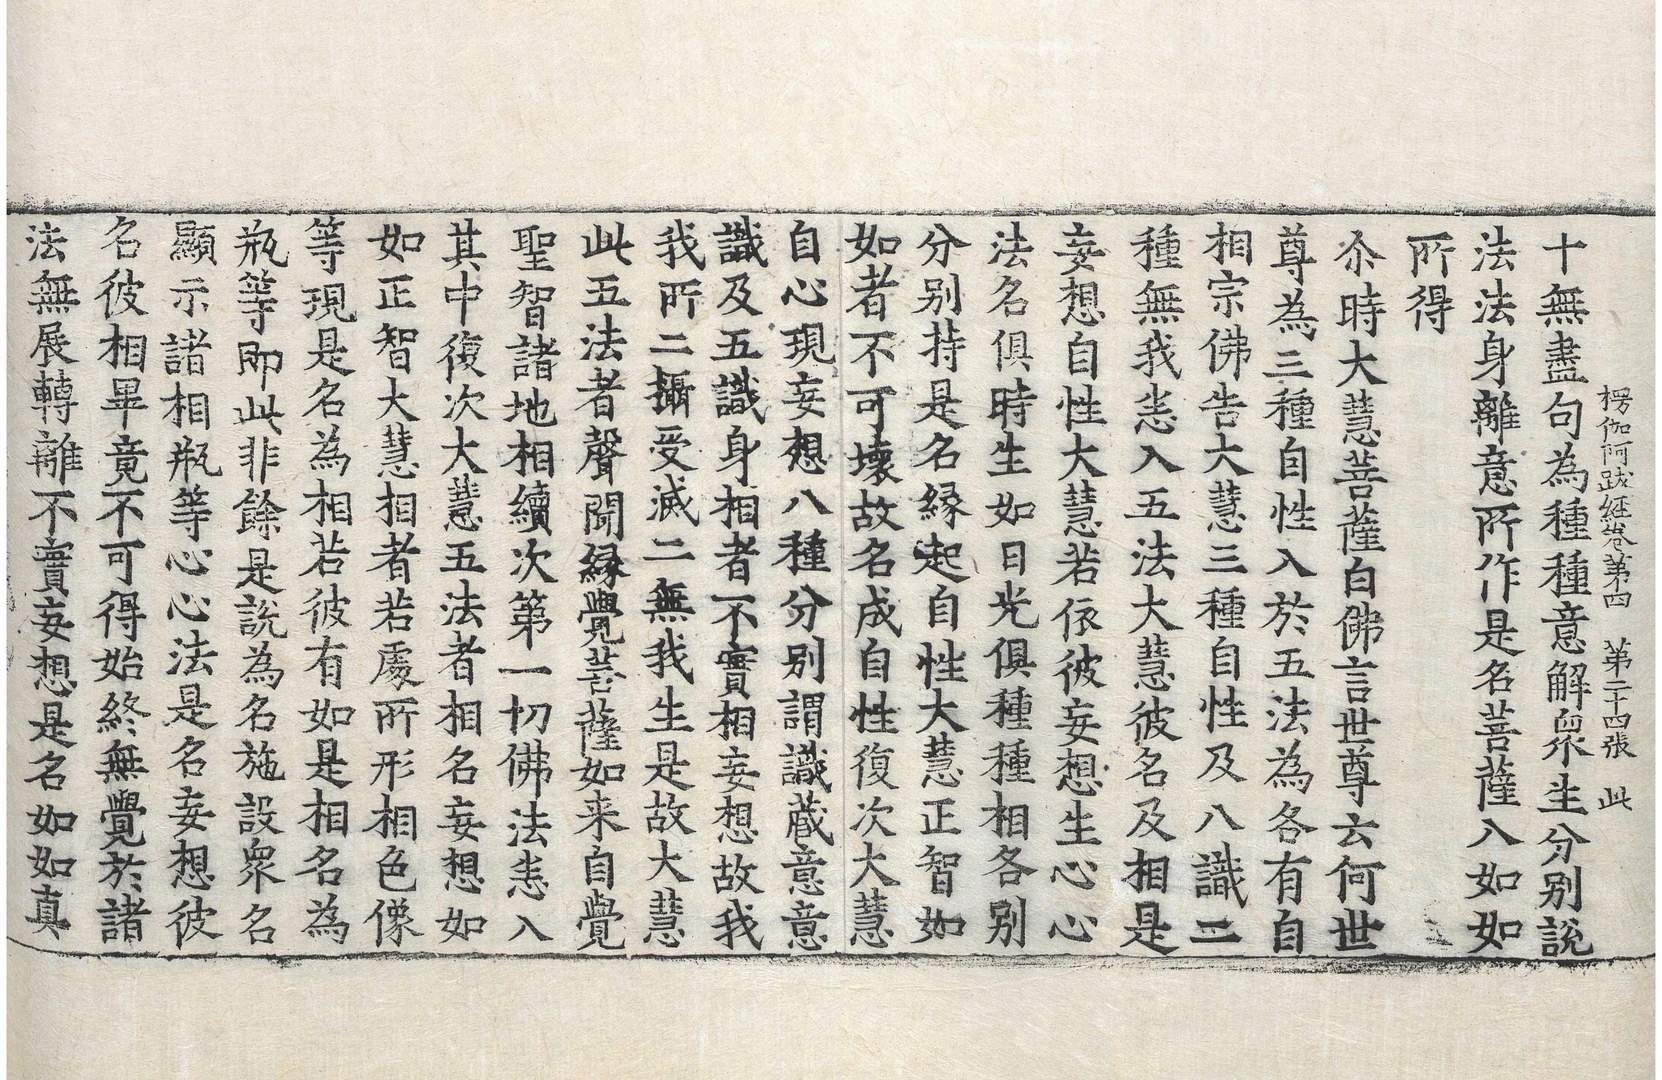 楞伽阿跋經卷第四　第二十四張　此
十無盡句為種種意解衆生分別說
法法身離意所作是名菩薩入如如
所得
尒時大慧菩薩白佛言世尊云何世
尊為三種自性入於五法為各有自
相宗佛告大慧三種自性及八識二
種無我悉入五法大慧彼名及相是
妄想自性大慧若依彼妄想生心心
法名俱時生如日光俱種種相各別
分別持是名緣起自性大慧正智如
如者不可壞故名成自性復次大慧
自心現妄想八種分別謂識藏意意
識及五識身相者不實相妄想故我
我所二攝受滅二無我生是故大慧
此五法者聲聞緣覺菩薩如来自覺
聖智諸地相續次第一切佛法悉入
其中復次大慧五法者相名妄想如
如正智大慧相者若處所形相色像
等現是名為相若彼有如是相名為
瓶等即此非餘是說為名施設衆名
顯示諸相瓶等心心法是名妄想彼
名彼相畢竟不可得始終無覺於諸
法無展轉離不實妄想是名如如真